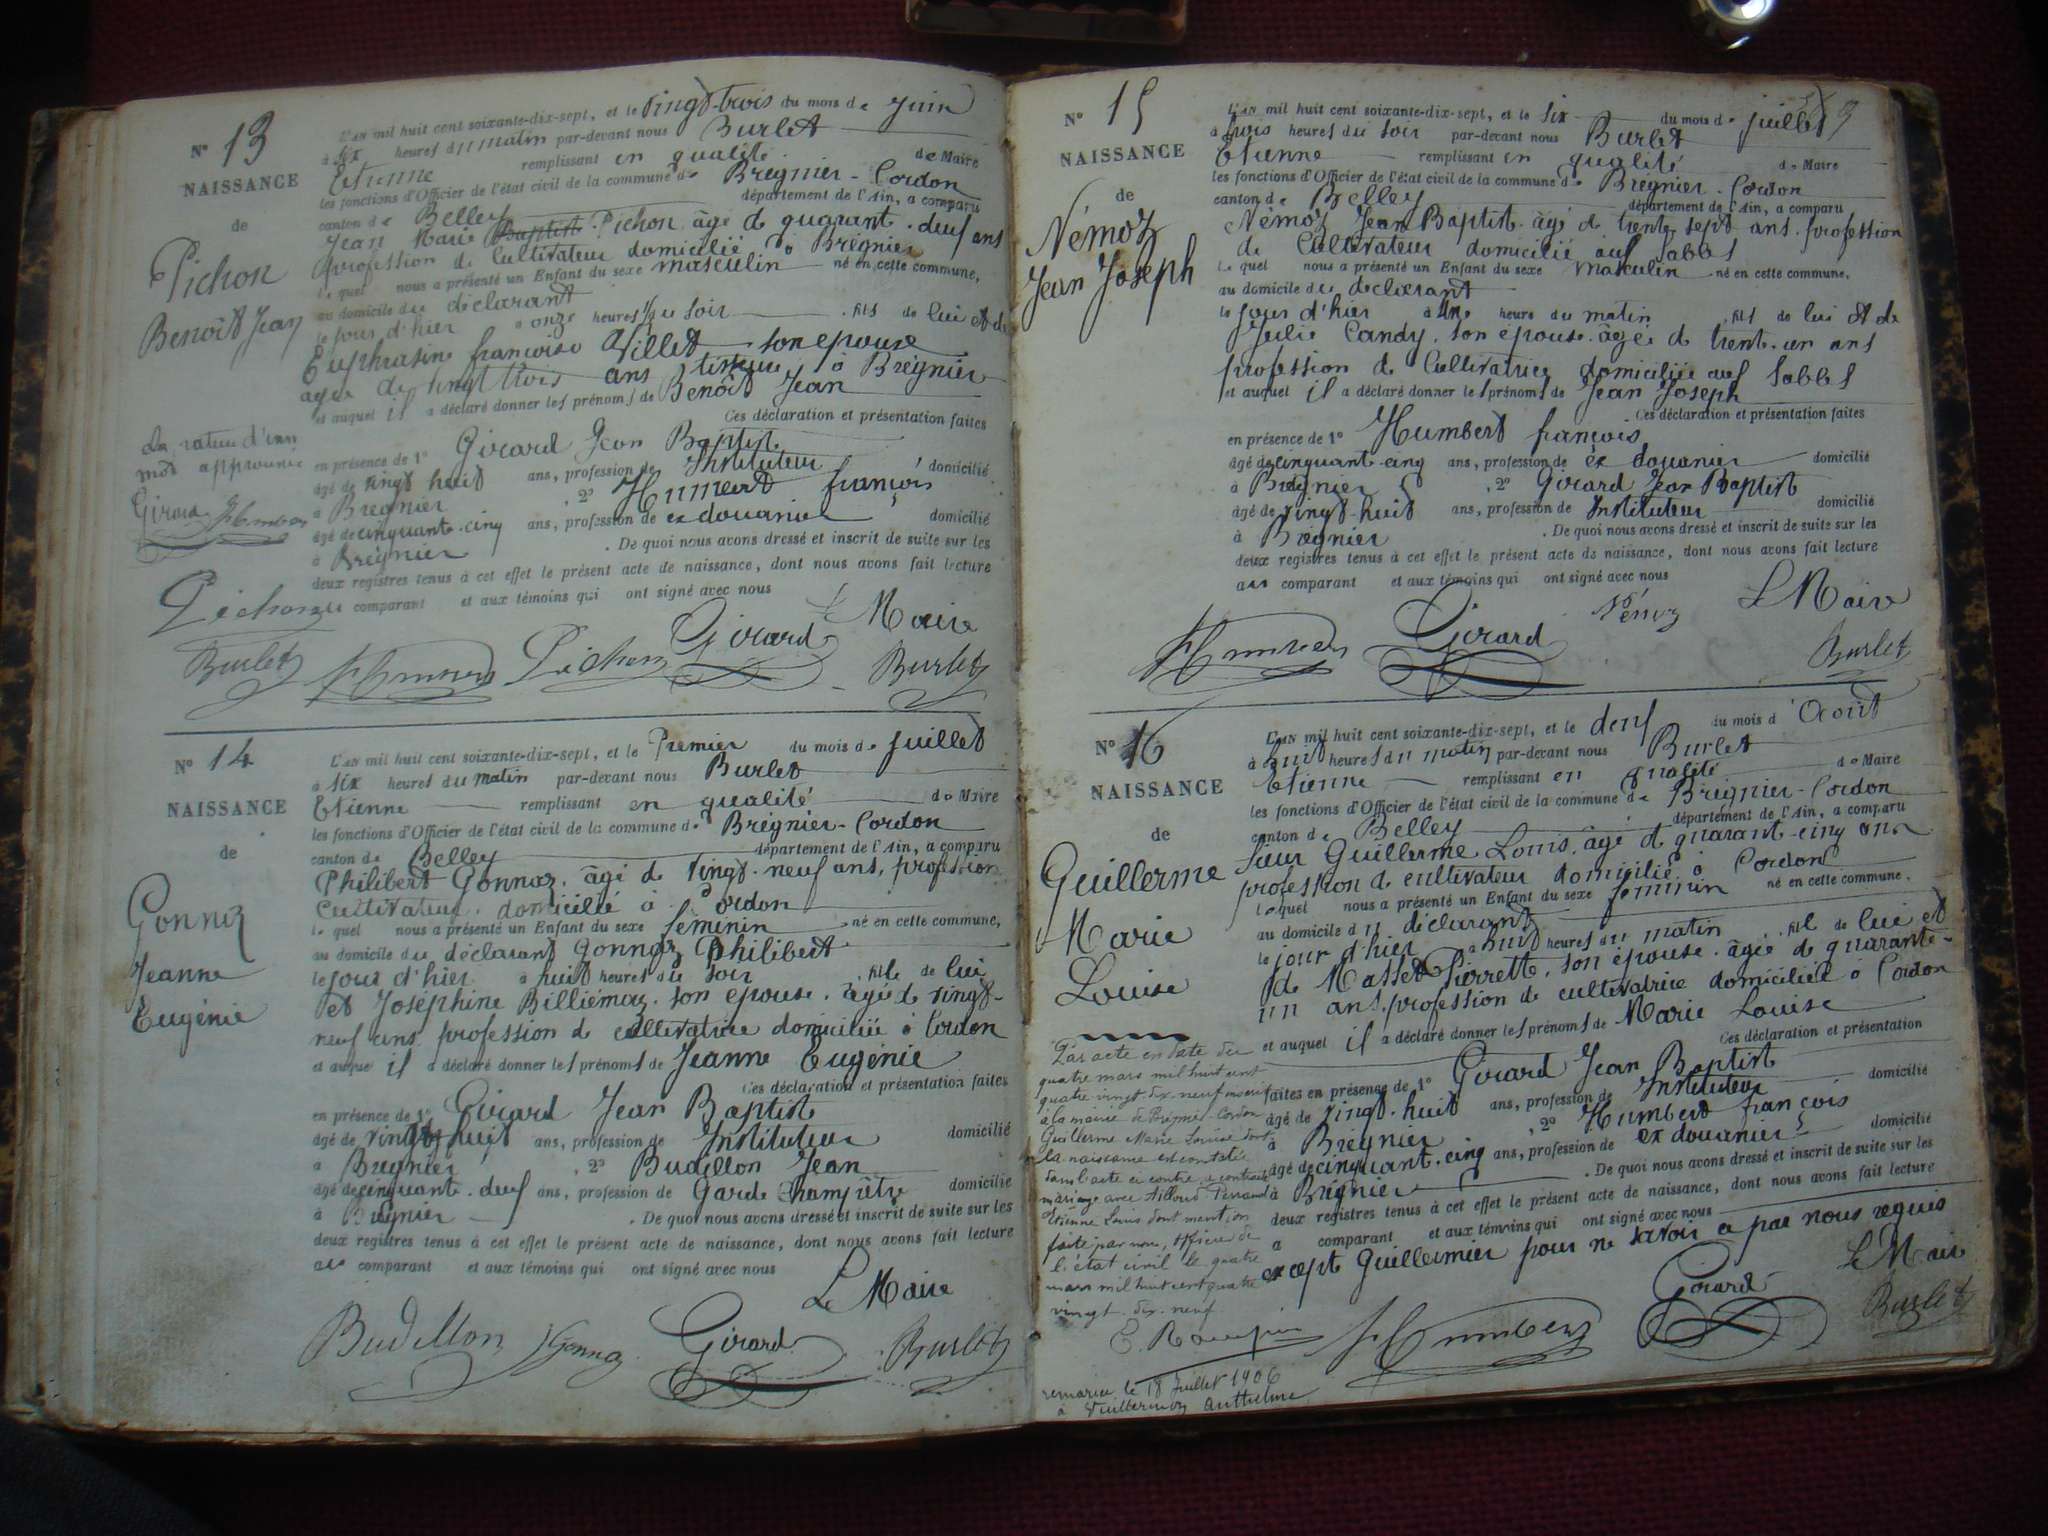 N° 13
NAISSANCE
de
Pichon
Benoît Jean
L'AN mil huit cent soixante-dix-sept, et le vingt-trois du mois de Juin
à six heures du matin par-devant nous Burlet
Etienne remplissant en qualité de Maire
les fonctions d'Officier de l'état civil de la commune de Brégnier-Cordon
canton de Belley département de l'Ain, a comparu
Jean Marie Baptiste Pichon, âgé de quarante-deux ans
profession de Cultivateur domicilié à Brégnier
lequel nous a présenté un Enfant du sexe masculin né en cette commune,
au domicile du déclarant
le jour d'hier à onze heures du soir fils de lui et de
Euphrasine françoise Villet son épouse
âgée de vingt trois ans à Brégnier
et auquel il a déclaré donner les prénoms de Benoît Jean
Ces déclaration et présentation faites
en présence de 1° Girard Jean Baptiste
âgé de vingt huit ans, profession de Instituteur domicilié
à Brégnier , 2° Humbert françois
âgé de cinquante-cinq ans, profession de ex douanier domicilié
à Brégnier . De quoi nous avons dressé et inscrit de suite sur les
deux registres tenus à cet effet le présent acte de naissance, dont nous avons fait lecture
au comparant et aux témoins qui ont signé avec nous
La rature d'un
mot approuvée
Girard Humbert
Pichon
Le Maire
Burlet Humbert Pichon Girard Burlet
N° 14
NAISSANCE
de
Gonnoz
Jeanne
Eugénie
L'AN mil huit cent soixante-dix-sept, et le Premier du mois de Juillet
à six heures du matin par-devant nous Burlet
Etienne remplissant en qualité de Maire
les fonctions d'Officier de l'état civil de la commune de Brégnier-Cordon
canton de Belley département de l'Ain, a comparu
Philibert Gonnoz, âgé de vingt-neuf ans, profession
Cultivateur, domicilié à Cordon
lequel nous a présenté un Enfant du sexe féminin né en cette commune,
au domicile du déclarant Gonnoz Philibert
le jour d'hier à huit heures du soir fille de lui
et Joséphine Billiémaz, son épouse, âgée de vingt-
neuf ans profession de cultivatrice domiciliée à Cordon
et auquel il a déclaré donner les prénoms de Jeanne Eugénie
Ces déclaration et présentation faites
en présence de 1° Girard Jean Baptiste
âgé de vingt huit ans, profession de Instituteur domicilié
à Brégnier , 2° Budillon Jean
âgé de cinquante-deux ans, profession de Garde Champêtre domicilié
à Brégnier . De quoi nous avons dressé et inscrit de suite sur les
deux registres tenus à cet effet le présent acte de naissance, dont nous avons fait lecture
au comparant et aux témoins qui ont signé avec nous
Le Maire
Budillon Gonnoz Girard Burlet
N° 15
NAISSANCE
de
Némoz
Jean Joseph
L'AN mil huit cent soixante-dix-sept, et le six du mois de juillet
à trois heures du soir par-devant nous Burlet
Etienne remplissant en qualité de Maire
les fonctions d'Officier de l'état civil de la commune de Brégnier-Cordon
canton de Belley département de l'Ain, a comparu
Némoz Jean Baptiste âgé de trente sept ans, profession
de Cultivateur domicilié aux Sables
lequel nous a présenté un Enfant du sexe Masculin né en cette commune,
au domicile du déclarant
le jour d'hier à une heure du matin fils de lui et de
Julie Candy, son épouse, âgée de trente-un ans
profession de Cultivatrice domiciliée aux Sables
et auquel il a déclaré donner les prénoms de Jean Joseph
Ces déclaration et présentation faites
en présence de 1° Humbert françois
âgé de cinquante-cinq ans, profession de ex douanier domicilié
à Brégnier , 2° Girard Jean Baptiste
âgé de vingt-huit ans, profession de Instituteur domicilié
à Brégnier . De quoi nous avons dressé et inscrit de suite sur les
deux registres tenus à cet effet le présent acte de naissance, dont nous avons fait lecture
au comparant et aux témoins qui ont signé avec nous
Némoz Le Maire
Humbert Girard Burlet
N° 16
NAISSANCE
de
Guillerme
Marie
Louise
L'AN mil huit cent soixante-dix-sept, et le deux du mois d'Août
à huit heures du matin par-devant nous Burlet
Etienne remplissant en qualité de Maire
les fonctions d'Officier de l'état civil de la commune de Brégnier-Cordon
canton de Belley département de l'Ain, a comparu
sieur Guillerme Louis, âgé de quarante-cinq ans
profession de cultivateur domicilié à Cordon
lequel nous a présenté un Enfant du sexe féminin né en cette commune,
au domicile du déclarant
le jour d'hier à huit heures du matin fille de lui et
de Masset Pierrette, son épouse, âgée de quarante-
un ans, profession de cultivatrice domiciliée à Cordon
et auquel il a déclaré donner les prénoms de Marie Louise
Ces déclaration et présentation
faites en présence de 1° Girard Jean Baptiste
âgé de vingt-huit ans, profession de Instituteur domicilié
à Brégnier , 2° Humbert françois
âgé de cinquante-cinq ans, profession de ex douanier domicilié
à Brégnier . De quoi nous avons dressé et inscrit de suite sur les
deux registres tenus à cet effet le présent acte de naissance, dont nous avons fait lecture
a comparant et aux témoins qui ont signé avec nous
excepté Guillermier pour ne savoir a par nous requis
Le Maire
Humbert Girard Burlet
Par acte en date du
quatre mars mil huit cent
quatre vingt dix-neuf inscrit
à la mairie de Brégnier-Cordon
Guillerme Marie Louise dont
la naissance est constatée
dans l'acte ci contre a contracté
mariage avec
Etienne Louis dont mention
faite par nous, officier de
l'état civil le quatre
mars mil huit cent quatre
vingt-dix-neuf
remariée le 18 Juillet 1906
à Anthelme